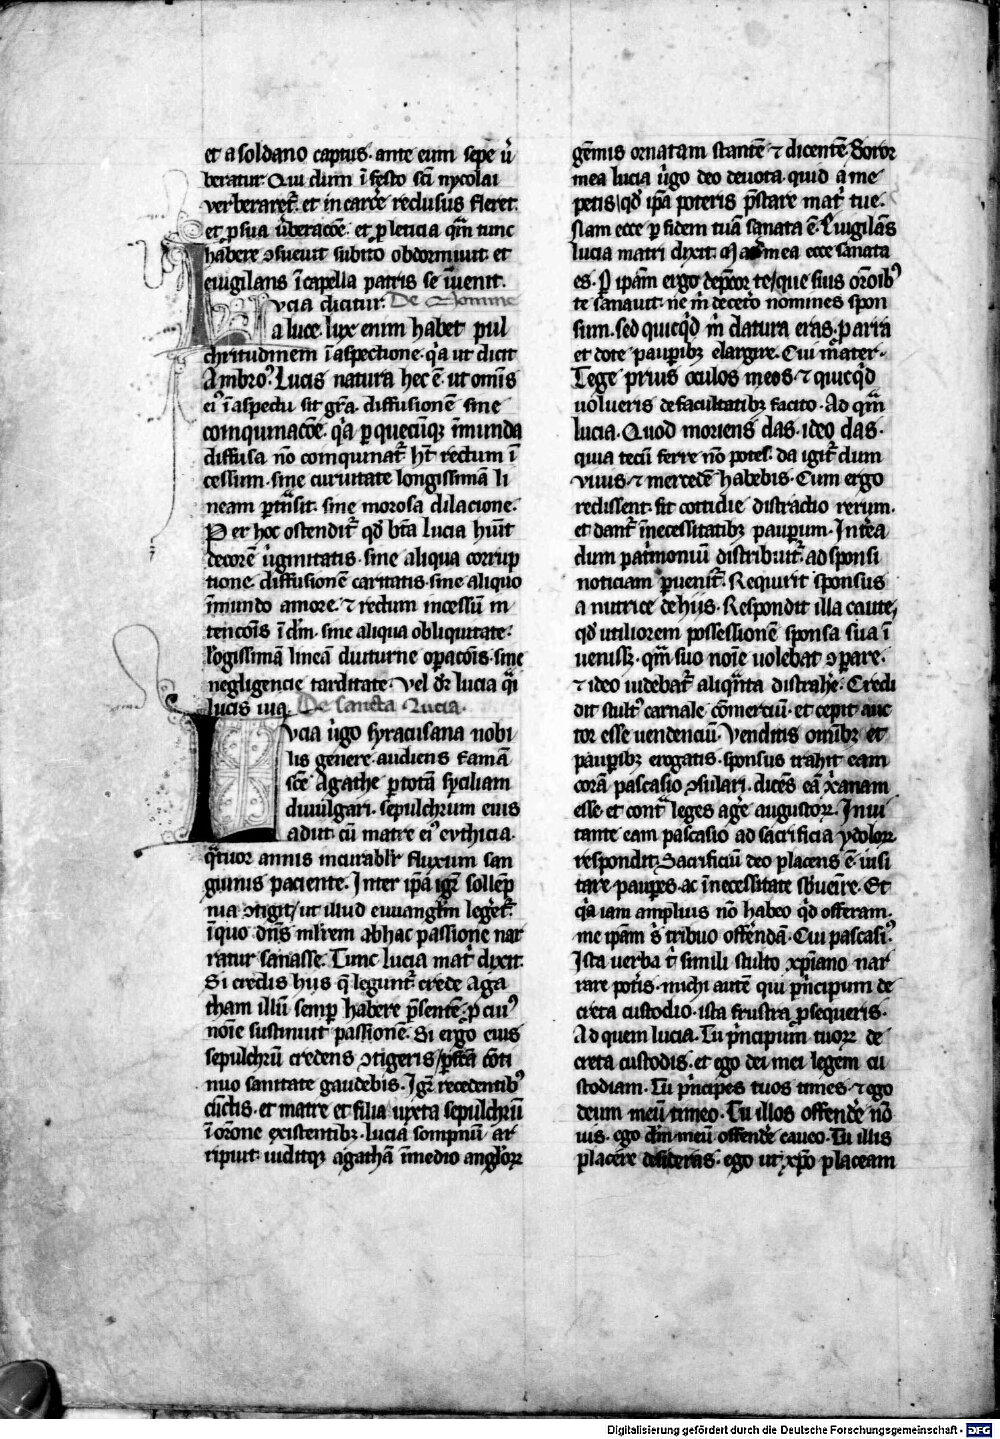 et a soldano captus. ante eum sepe u᷑
beratur. Qui dum ī festo sc̄i nycolai
verberaret᷑. et in carc̄e reclusus fleret.
et ꝑ sua u᷑beracōe. et ꝑ leticia qm̄ tunc
habere ꝯsueuit subito obdormiuit et
euigilans ī capella patris se īuenit.
Lucia dicitur. De Nomine
a luce. lux enim habet pul
chritudinem ī aspectione. q̇a ut dicit
Ambroꝰ. Lucis natura hec ē. ut om̄is
eiꝰ ī aspectu sit gr̄a. diffusionē sine
coinquinacōe. q̇a ꝑ quecūqꝫ īmunda
diffusa nō coinquinat᷑. hꝫ rectum ī
cessum. sine curuitate longissimā li
neam ꝑtͣnsit. sine morosa dilacione.
Per hoc ostendit᷑ qd̄ bt̄a lucia hūit
decorē u᷑ginitatis. sine aliqua corrup
tione. diffusionē caritatis. sine aliquo
īmundo amore. ⁊ rectum incessū in
tencōis ī dm̄. sine aliqua obliquitate.
lōgissimā lineā diuturne oꝑacōis. sine
negligencie tarditate. Vel dr̄ lucia q̄i
lucis uia. De sancta Lucia.
Lucia u᷑go syracusana nobi
lis genere. audiens famā
sc̄e Agathe ꝑ totā syciliam
diuulgari. sepulchrum eius
adiit. cū matre eiꝰ euthicia.
qͣtuor annis incurabilr̄ fluxum san
guinis paciente. Inter ip̄a igr̄ sollēp
nia ꝯtigit/ ut illud euuangl̄m leget᷑.
ī quo dn̄s ml̓irem ab hac passione nar
ratur sanasse. Tunc lucia matͥ dixit.
Si credis hijs q̄ legunt᷑. crede aga
tham illū semꝑ habere p̄sentē. ꝓ cuiꝰ
noīe sustinuit passionē. Si ergo eius
sepulchrū credens ꝯtigeris/ ꝑfc̄a cōti
nuo sanitate gaudebis. Igr̄ recedentibꝰ
cūctis. et matre et filia iuxta sepulchrū
ī or̄one existentibꝫ. lucia sompnū ar
ripuit. uiditqꝫ agathā ī medio anglorꝝ
gēmis ornatam stantē ⁊ dicentē. Soror
mea lucia u᷑go deo deuota. quid a me
petis/ qd̄ ip̄a poteris p̄stare matͥ tue.
Nam ecce ꝑ fidem tuā sanata ē. Euigilās
lucia matri dixit. Mater mea ecce sanata
es. Per ipām ergo dep̄cor te/ que suis or̄oibꝰ
te sanauit. ne m̄ decet̓o nomines spon
sum. sed quicqd̄ m̄ datura eras. paria
et dote pauꝑibꝫ elargire. Cui mater.
Tege prius oculos meos. ⁊ quicqd̄
uolueris de facultatibꝫ facito. Ad qm̄
lucia. Quod moriens das. ideo das.
quia tecū ferre nō potes. da igit᷑ dum
viuis. ⁊ mercedē habebis. Cum ergo
redissent. fit cottidie distractio rerum.
et dant᷑ ī necessitatibꝫ pauꝑum. Int̓ea
dum pat̓monium distribuit᷑. ad sponsi
noticiam ꝑuenit᷑. Requirit sponsus
a nutrice de hijs. Respondit illa caute,
qd̄ utiliorem possessionē sponsa sua ī
uenisset. qm̄ suo noīe uolebat ꝯparare.
⁊ ideo uidebat᷑ aliqͣnta distrahe᷑. Credi
dit stultꝰ carnale cōmerciū. et cepit auc
tor esse uendenciū. Venditis om̄ibꝫ et
pauꝑibꝫ erogatis. sponsus trahit eam
corā pascasio ꝯsulari. dicēs eā xp̄ianam
esse. et contͣ leges ag̓e augustorꝝ. Inui
tante eam pascasio ad sacrificia ydolorꝝ.
respondit. Sacrificiū deo placens ē. uisi
tare pauꝑes. ac ī necessitate sb̓uenire. Et
q̇a iam amplius nō habeo qd̄ offeram.
me ip̄am s̄ tribuo offe᷑ndā. Cui pascasiꝰ.
Ista uerba t̄ simili stulto xp̄iano nar
rare pot̓is. michi autē qui pͥncipum de
creta custodio. ista frustra ꝓsequeris.
Ad quem lucia. Tu pͥncipum tuorꝝ de
creta custodis. et ego dei mei legem cu
stodiam. Tu pͥncipes tuos times. ⁊ ego
deum meū timeo. Tu illos offende᷑ nō
uis. ego dm̄ meū offende᷑ caueo. Tu illis
placere desideras. ego ut xp̄o placeam
Digitalisierung gefördert durch die Deutsche Forschungsgemeinschaft - DFG